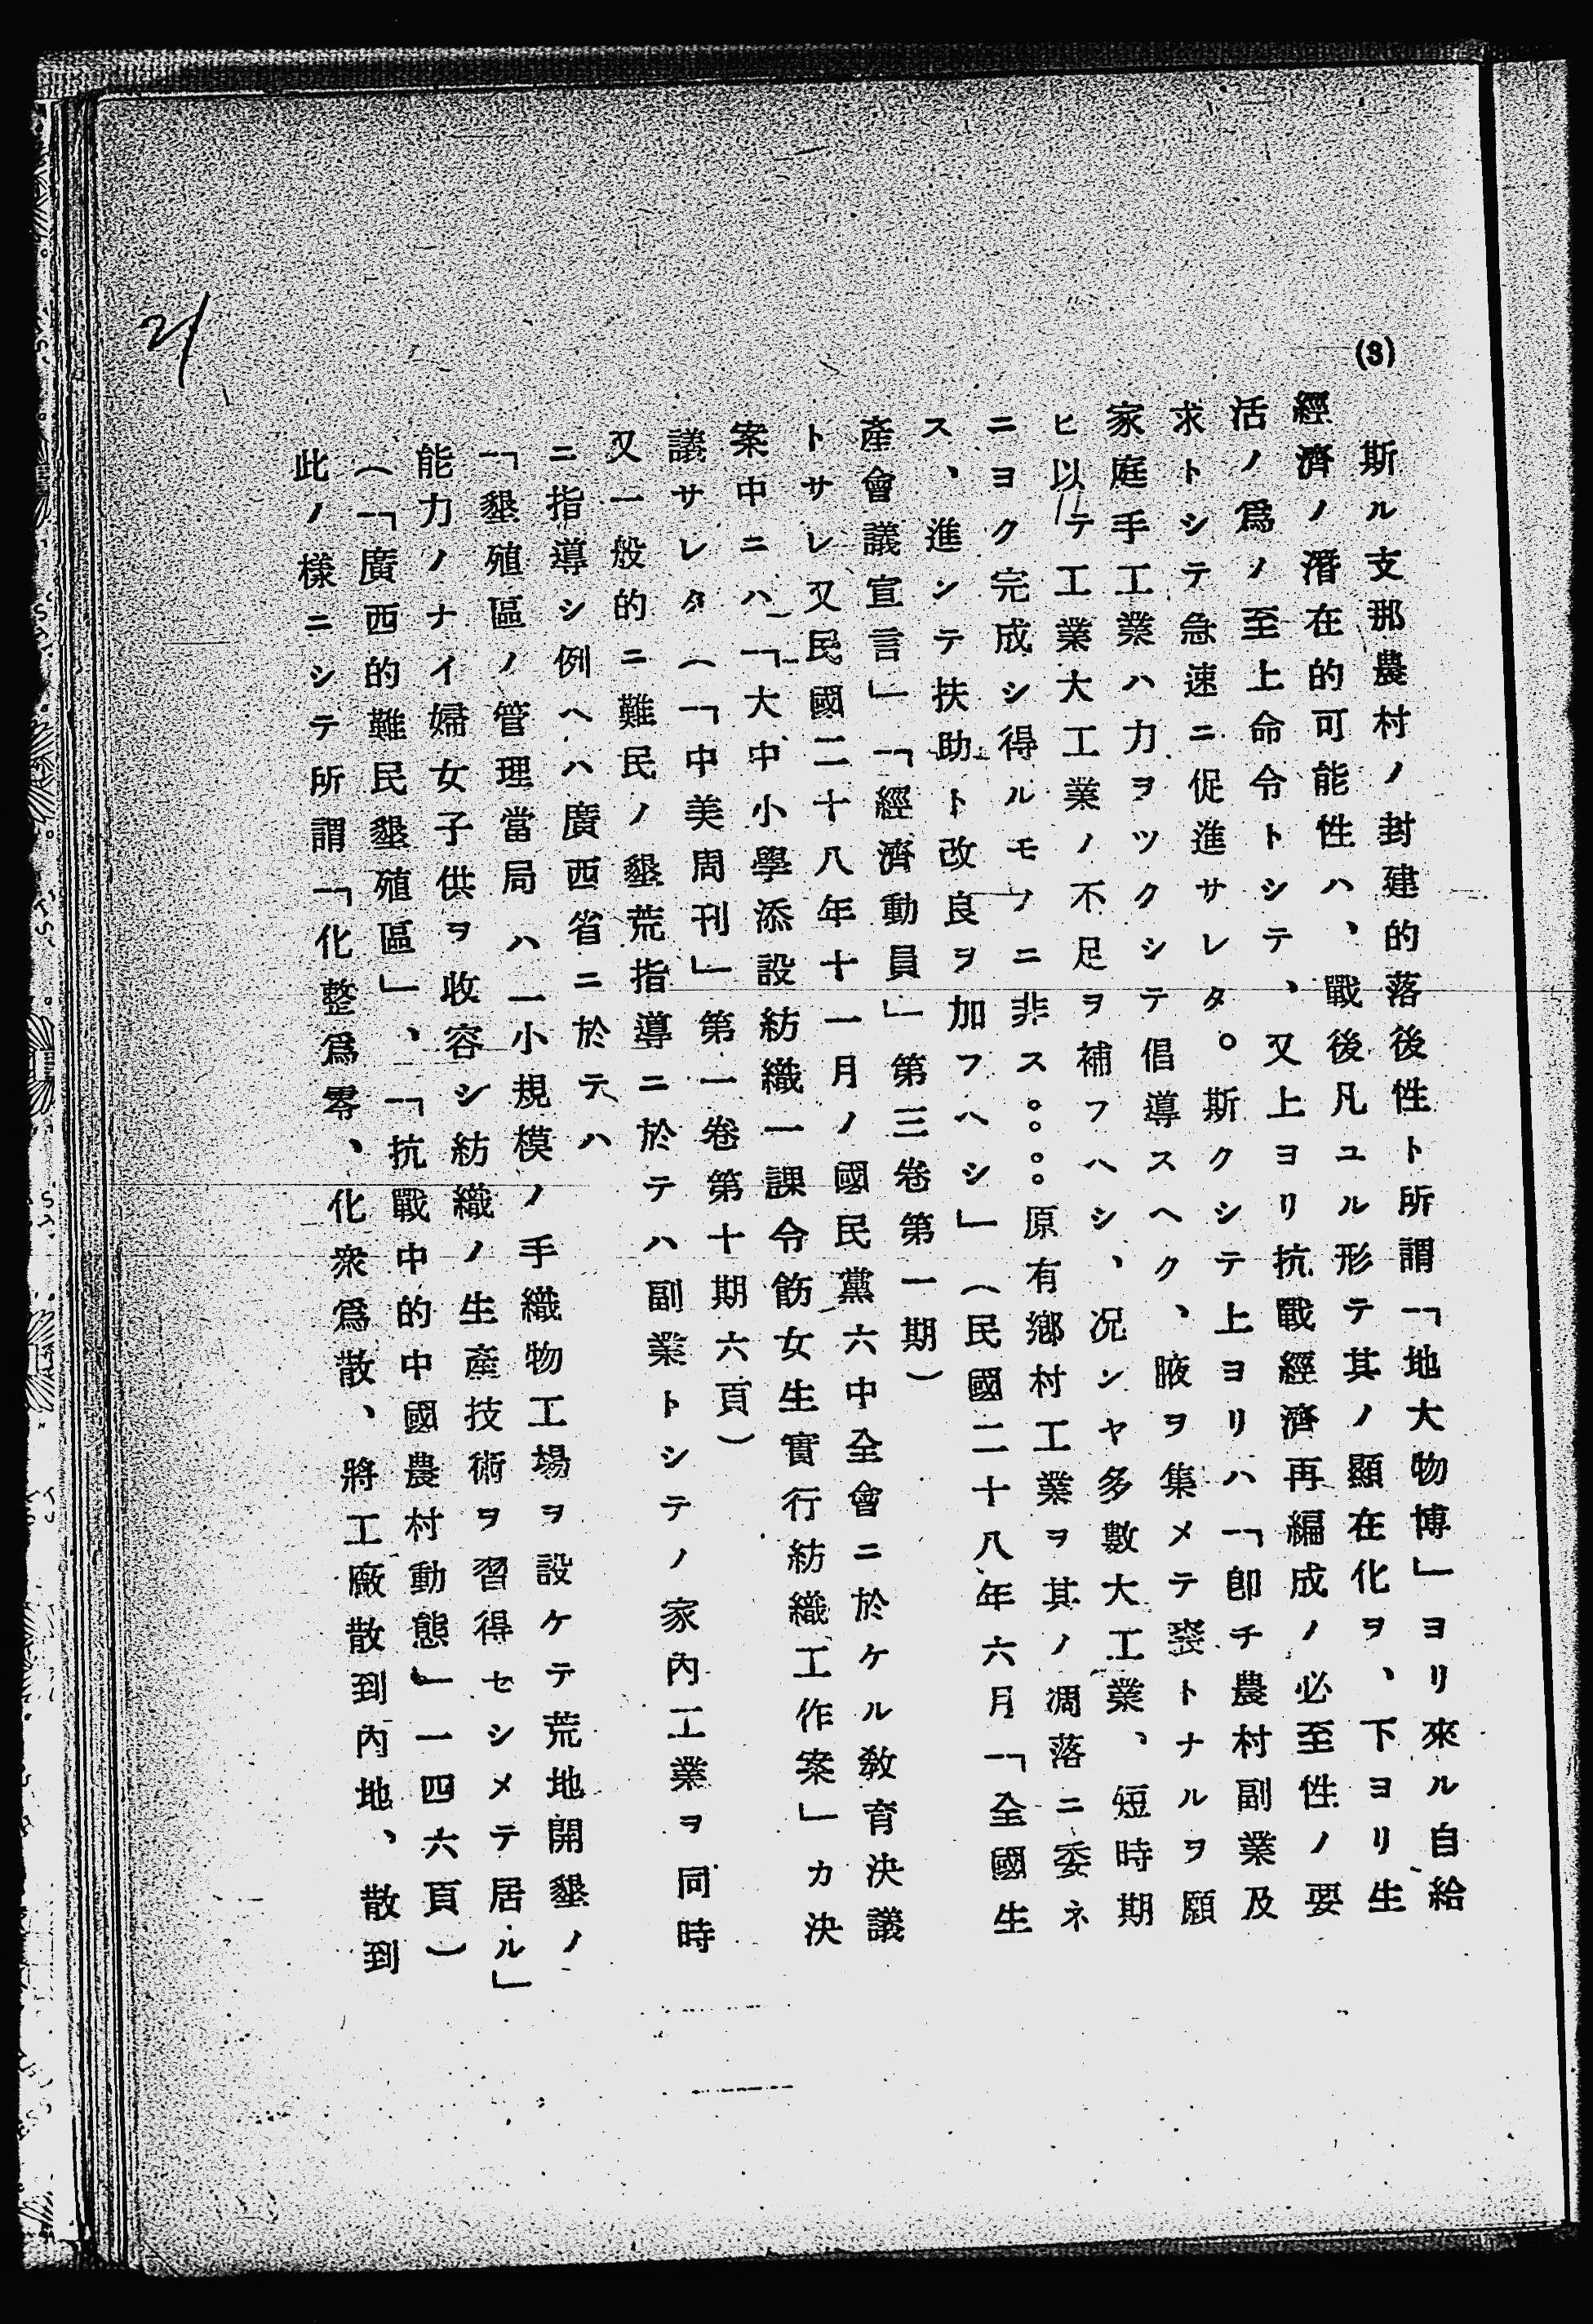 (3)
斯ル支那農村ノ封建的落後性ト所謂「地大物博」ヨリ來ル自給
經濟ノ潛在的可能性ハ、戰後凡ユル形テ其ノ顯在化ヲ、下ヨリ生
活ノ爲ノ至上命令トシテ、又上ヨリ抗戰經濟再編成ノ必至性ノ要
求トシテ急速ニ促進サレタ。斯クシテ上ヨリハ「卽チ農村副業及
家庭手工業ハ力ヲツクシテ倡導スヘク、腋ヲ集メテ裘トナルヲ願
ヒ以テ工業大工業ノ不足ヲ補フヘシ、況ンヤ多數大工業、短時期
ニヨク完成シ得ルモノニ非ス。。。。原有鄕村工業ヲ其ノ凋落ニ委ネ
ス、進シテ扶助ト改良ヲ加フヘシ」（民國二十八年六月「全國生
產會議宣言」「經濟動員」第三卷第一期）
トサレ又民國二十八年十一月ノ國民黨六中全會ニ於ケル敎育決議
案中ニハ「大中小學添設紡織一課令飭女生實行紡織工作案」カ決
議サレタ（「中美周刊」第一卷第十期六頁）
又一般的ニ難民ノ墾荒指導ニ於テハ副業トシテノ家內工業ヲ同時
ニ指導シ例ヘハ廣西省ニ於テハ
「墾殖區ノ管理當局ハ一小規模ノ手織物工場ヲ設ケテ荒地開墾ノ
能力ノナイ婦女子供ヲ收容シ紡織ノ生產技術ヲ習得セシメテ居ル」
（「廣西的難民墾殖區」、「抗戰中的中國農村動態」一四六頁）
此ノ樣ニシテ所謂「化整爲零、化衆爲散、將工廠散到內地、散到
21